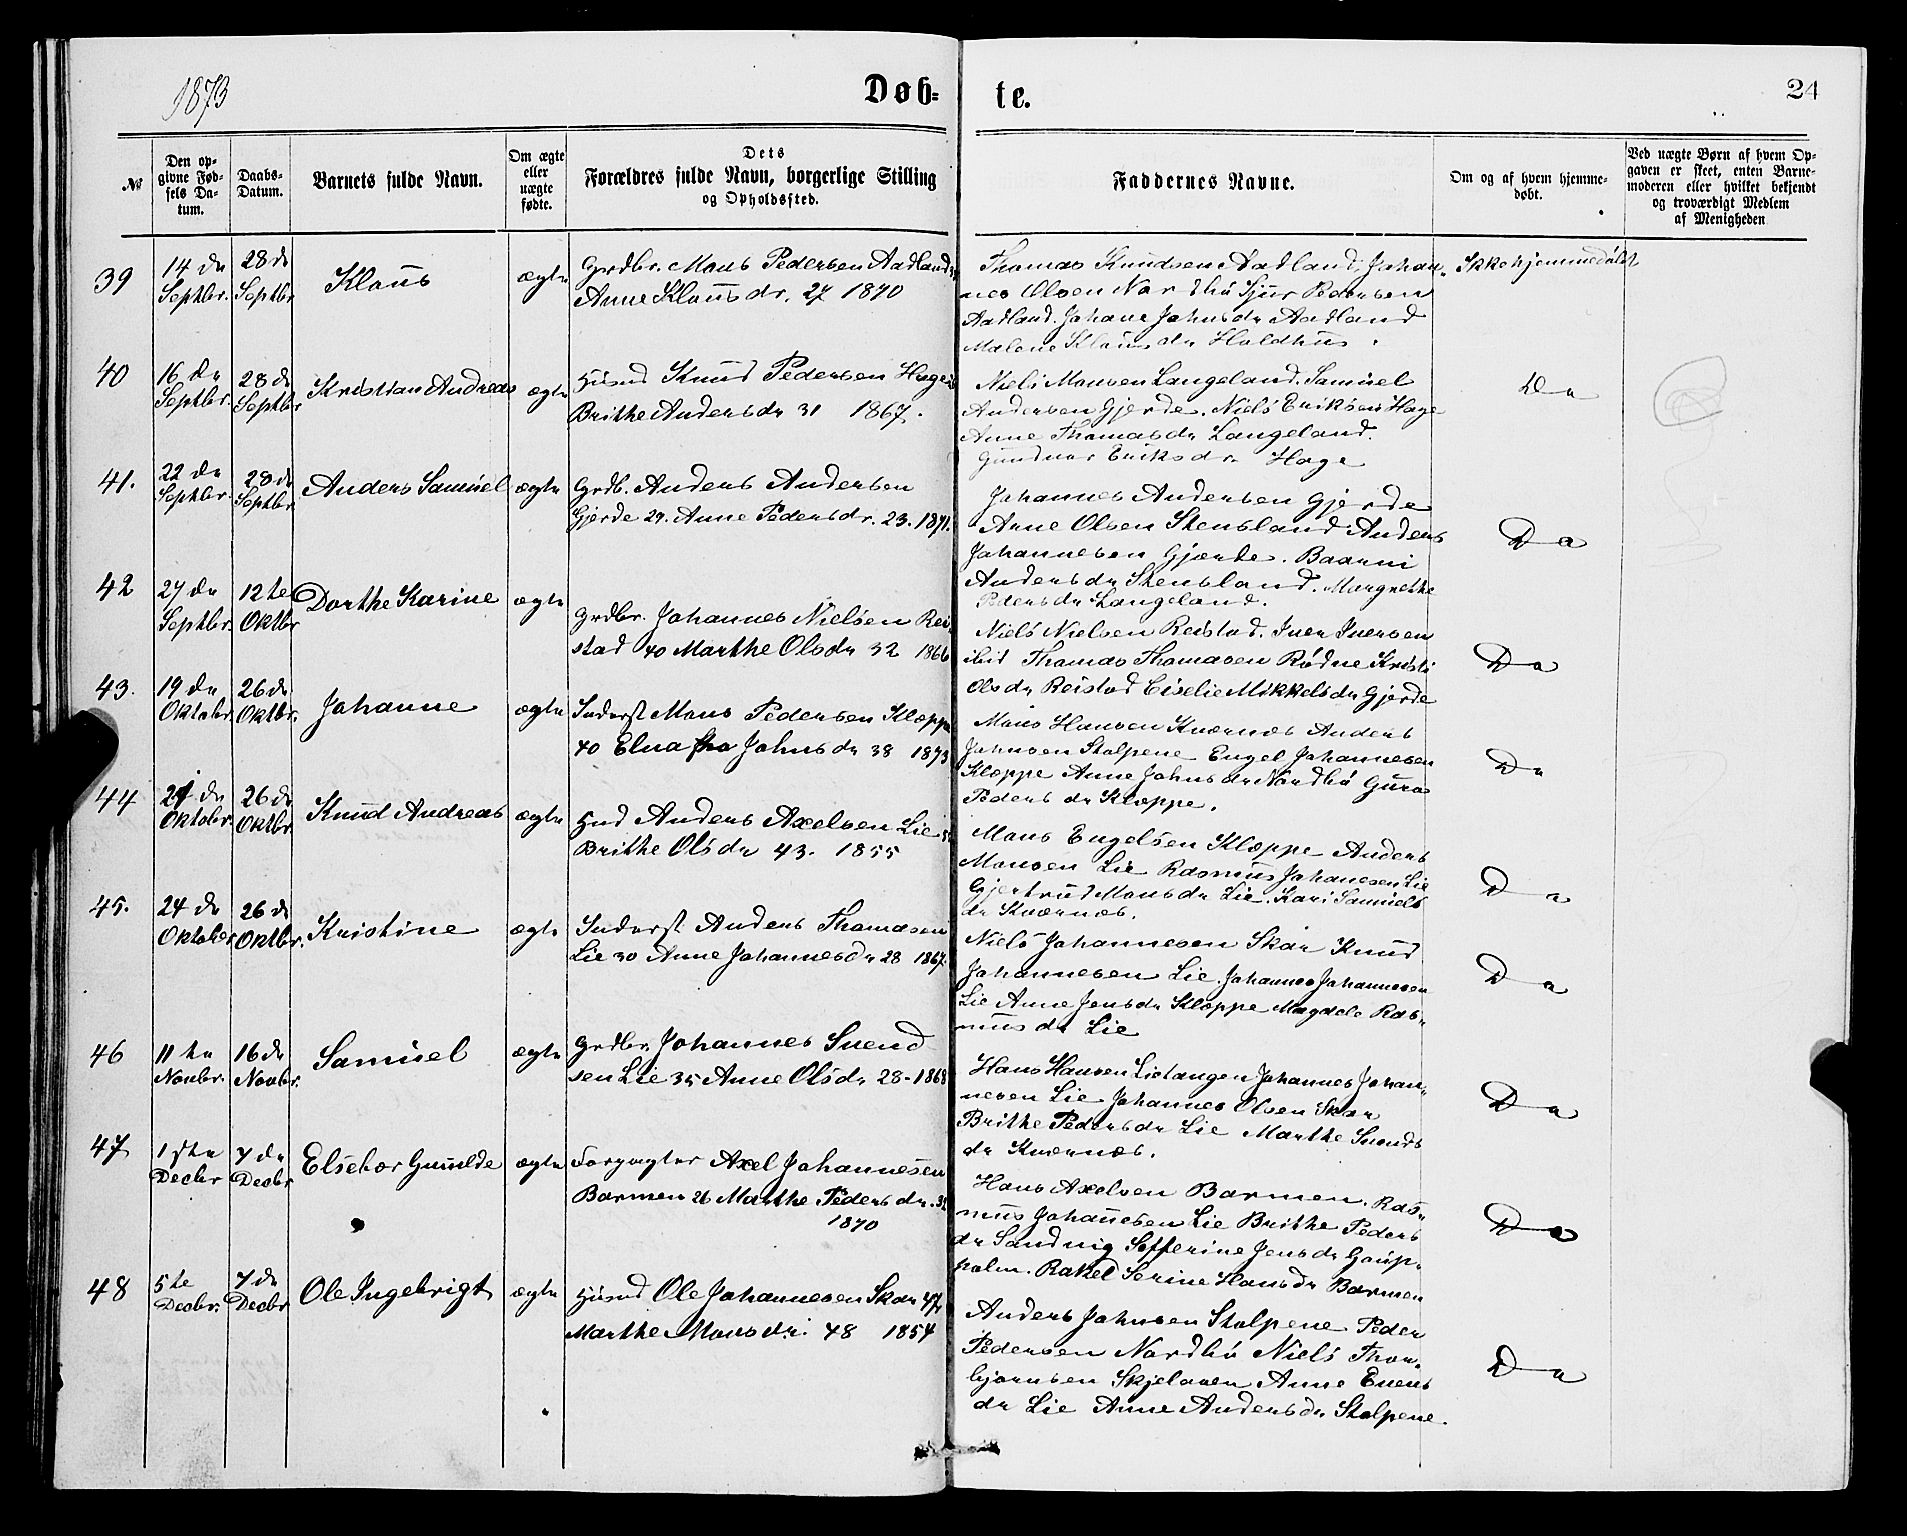 1873
Døb-
te.
24
№
Den op-
givne Fød-
sels Da-
tum.
Daabs-
Datum.
Barnets fulde Navn.
Om ægte
eller
uægte
fødte.
Dets
Forældres fulde Navn, borgerlige Stilling
og Opholdssted.
Faddernes Navne.
Om og af hvem hjemme-
døbt.
Ved uægte Børn af hvem Op-
gaven er skeet, enten Barne-
moderen eller hvilket bekjendt
og troværdigt Medlem
af Menigheden
39
14 de
Septbr.
28 de
Septbr
Klaus
ægte
Grdbr. Mons Pedersen Aadland
Anne Klausdr. 27 1870
Thomas Knudsen Aadland. Johan-
nes Olsen Nordhü Sjur Pedersen
Aadland. Johane Johnsdr Aadland
Malene Klausdr Holdhus.
Ikke hjemmedøbt
40
16 de
Septbr.
28 de
Septbr
Kristian Andreas
ægte
Husmd Knud Pedersen Hage
Brithe Andersdr 31 1867.
Niels Monsen Langeland. Samuel
Andersen Gjerde. Niels Eriksen Hage
Anne Thomasdr Langeland.
Eriksdr. Hage
Do
41.
22 de
Septbr.
28 de
Septbr
Anders Samuel
ægte
Grdb. Anders Andersen
Gjerde 29. Anne Pedersdr. 23. 1871.
Johannes Andersen Gjerde
Arne Olsen Stensland Anders
Johannesen Gjærde. Baarni
Andersdr Stensland. Margrethe
Pedersdr Langeland.
Do
42
27 de
Septbr.
12te
Oktbr
Dorthe Karine
ægte
Grdbr. Johannes Nielsen Rei-
stad 40 Marthe Olsdr 32 1866
Niels Nielsen Reistad. Iver Iversen
ibid Thomas Thomasen Rødne Kristi
Olsdr Reistad Mikkelsdr Gjerde
Do
43.
19 de
Oktobr.
26 de
Oktbr.
Johanne
ægte
Inderst Mons Pedersen Kloppe
40 Elna Johnsdr 38 1873
Mons Hansen Kvernes Anders
Johnsen Stolpene Engel Johannesen
Kloppe Anne Johnsdr Nordhü Guro
Pedersdr Kloppe.
Do
44
21 de
Oktobr.
26 de
Oktbr.
Knud Andreas
ægte
Hmd Anders Axelsen Lie
Brithe Olsdr 43. 1855
Mons Engelsen Kloppe Anders
Monsen Lie Rasmus Johanesen Lie
Gjertrud Monsdr Lie. Kari Samuels
dr Kvernes.
Do
45.
24 de
Oktober
26 de
Oktbr.
Kristine
ægte
Inderst Anders Thomasen
Lie 30 Anne Johannesdr 28 1867.
Niels Johannesen Skar Knud
Johannesen Lie. Johannes Johannesen
Lie Anne Jensdr Kloppe Magdele Ras-
mus dr Lie
Do
46
11te
Novbr.
16 de
Novbr.
Samuel
ægte
Grdbr. Johannes Svend
sen Lie 35 Anne Olsdr 28 - 1868
Hans Hansen Lietangen Johannes Johan-
nesen Lie Johannes Olsen Skar
Brithe Pedersdr Lie Marthe Svends
dr Kvernes.
Do
47
1ste
Decbr
7 de
Decbr
Elsebor Gunilde
ægte
Forpagter Axel Johannesen
Barmen 26 Marthe Pedersdr. 32
1870
Hans Axelsen Barmen. Ras-
mus Johannesen Lie Brithe Peders
dr Sandvig Sefferine Jensdr Gaup-
holm. Rakel Serine Hansdr Barmen
Do
48
5te
Decbr.
7 de
Decbr
Ole Ingebrigt
ægte
Husmd Ole Johannesen Skar 47
Marthe Monsdr. 48 1854
Anders Johnsen Stolpene Peder
Pedersen Nordhü Niels Thor-
bjørnsen Skjelaven Anne Evens
dr Lie Anne Andersdr Stolpene.
Do